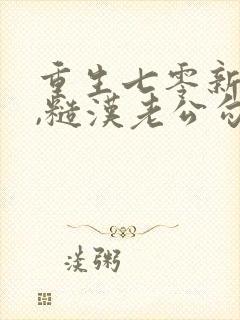 重生七零新
,糙漢老公勾
淡粥